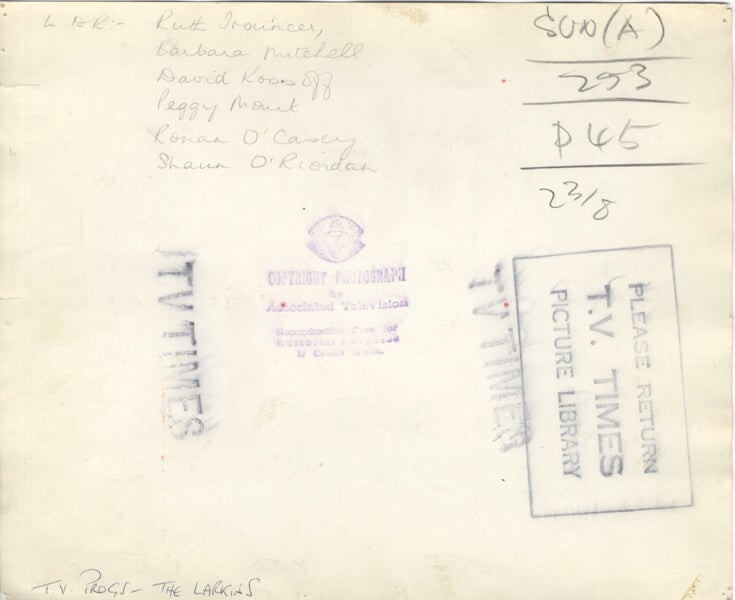 L. to R:- Ruth Trouncer,
Barbara Mitchell
David Kossoff
Peggy Mount
Ronan O'Casey
Shaun O'Riordan
SUN (A)
293
P 45
23/8
COPYRIGHT PHOTOGRAPH
by
Associated TeleVision
Reproduction Free for
Editorial Purposes
If Credit Given.
TV TIMES
TV TIMES
PLEASE RETURN
T.V. TIMES
PICTURE LIBRARY
T.V. PROGS - THE LARKINS